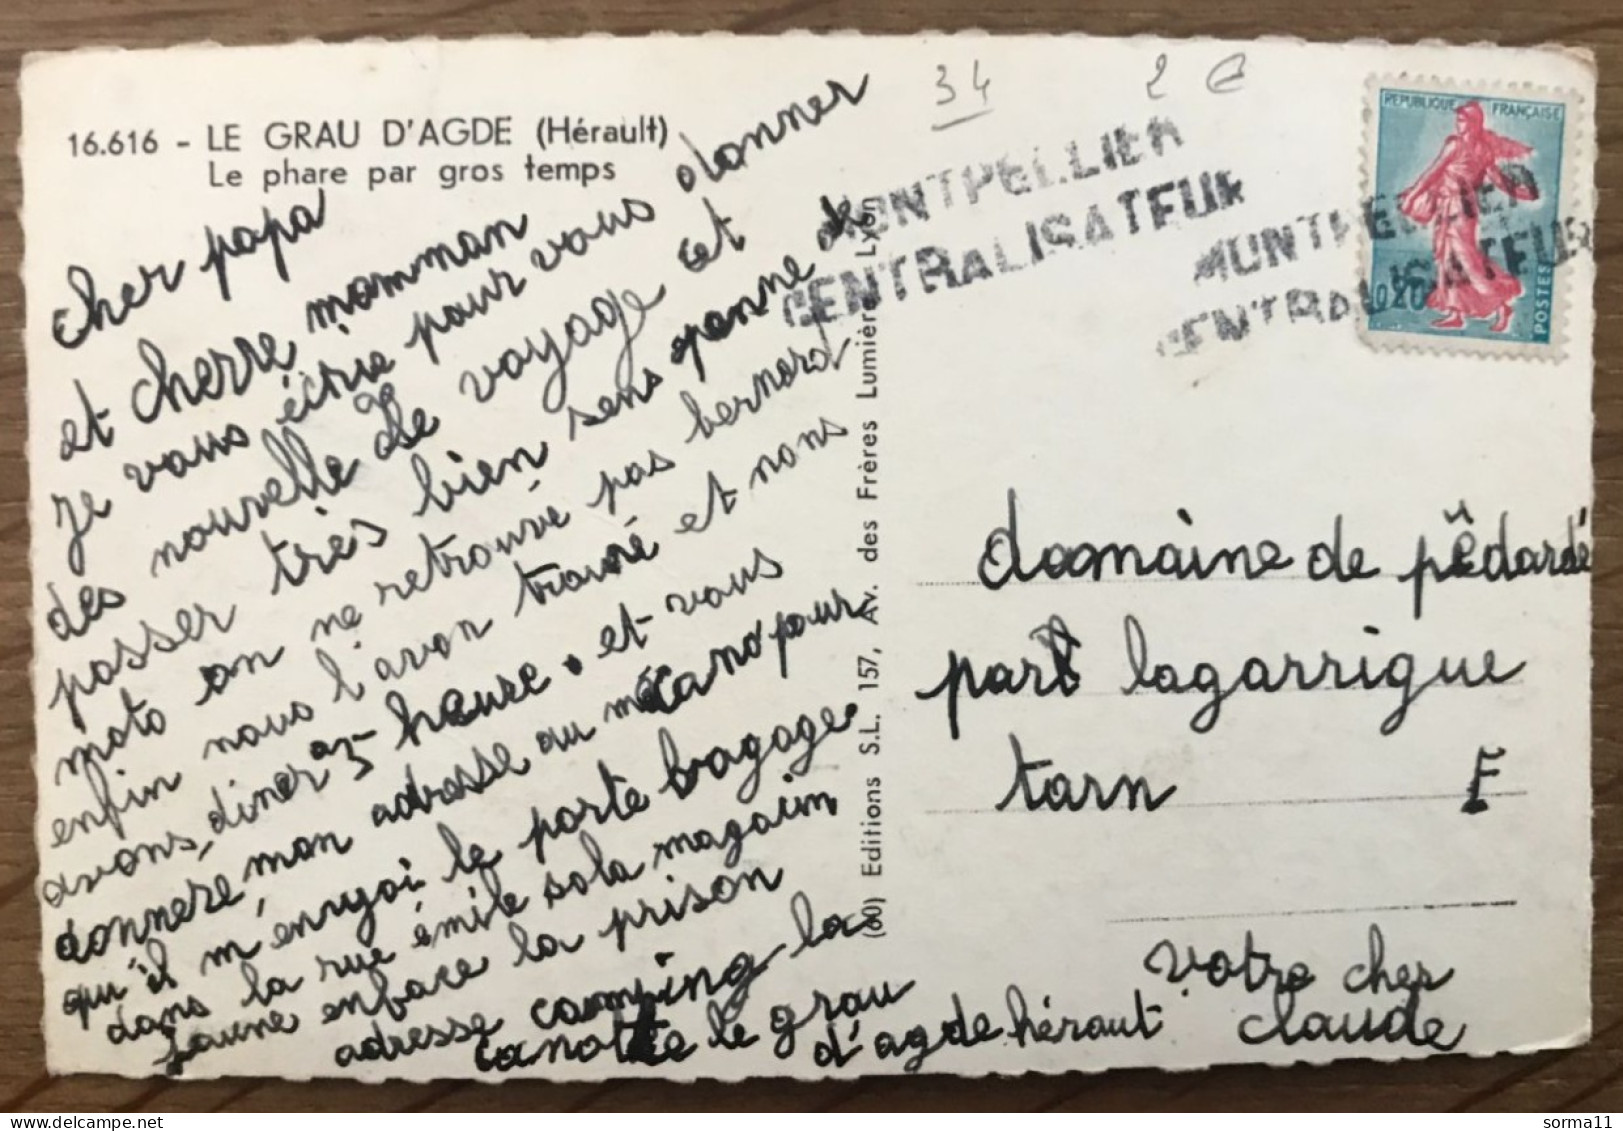 16.616 - LE GRAU D'AGDE (Hérault)
Le phare par gros temps
34
2 €
cher papa
et cherre momman
je vous écrie pour vous donner
des nouvelle de voyage et
passer très bien sens panne de
moto on ne retrouvé pas bernard
enfin nous l'avon trouvé et nous
avons, diner 3 heure. et vous
donnere, mon adresse au mécano pour
qu'il m'envoi le porte bagage.
dans la rue émile sola magasin
jaune enface la prison
adresse camping la
canotte le grau
d'agde héraut
votre cher
claude
(60) Editions S.L. 157, Av. des Frères Lumière Lyon
MONTPELLIER
CENTRALISATEUR
MONTPELLIER
CENTRALISATEUR
REPUBLIQUE FRANÇAISE
0,20
POSTES
domaine de pêdardé
part lagarrigue
tarn F
sorma11